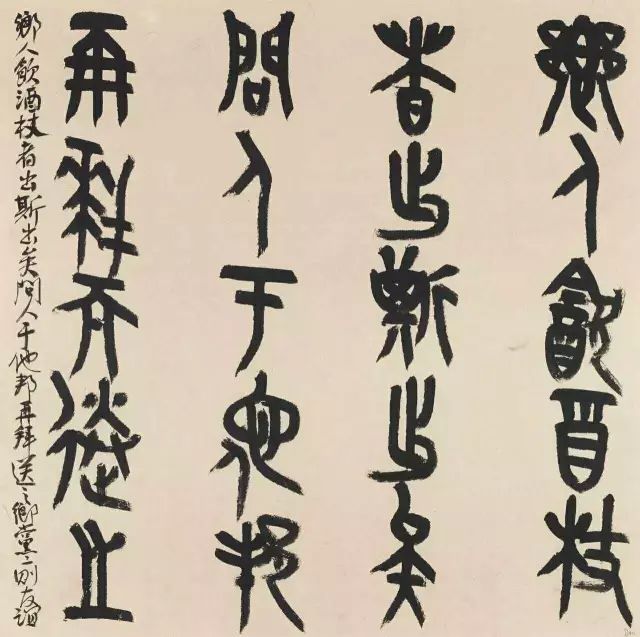 鄉人飲酒杖
者出斯出矣
問人于他邦
再拜而送之
鄉人飲酒杖者出斯出矣問人于他邦再拜送之鄉黨二則